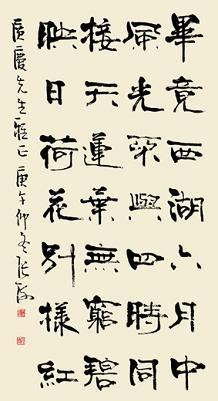 畢竟西湖六月中
風光不與四時同
接天蓮葉無窮碧
映日荷花別樣紅
慶先生雅正 庚午仲冬 張海